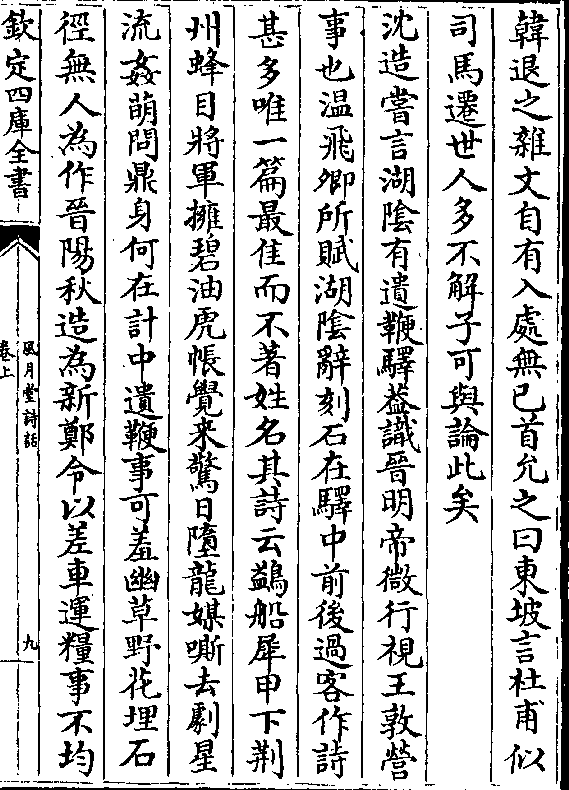 韓退之雜文自有入處無已首允之曰東坡言杜甫似
司馬遷世人多不解子可與論此矣
沈造嘗言湖陰有遺鞭驛葢識晉明帝微行視王敦營
事也温飛卿所賦湖陰辭刻石在驛中前後過客作詩
甚多唯一篇最佳而不著姓名其詩云鷁船犀甲下荆
州蜂目將軍擁碧油虎帳覺来驚日墮龍媒嘶去劇星
流姦萌問鼎身何在計中遺鞭事可羞幽草野花埋石
徑無人為作晉陽秋造為新鄭令以差車運糧事不均
欽定四庫全書
風月堂詩話
卷上
九